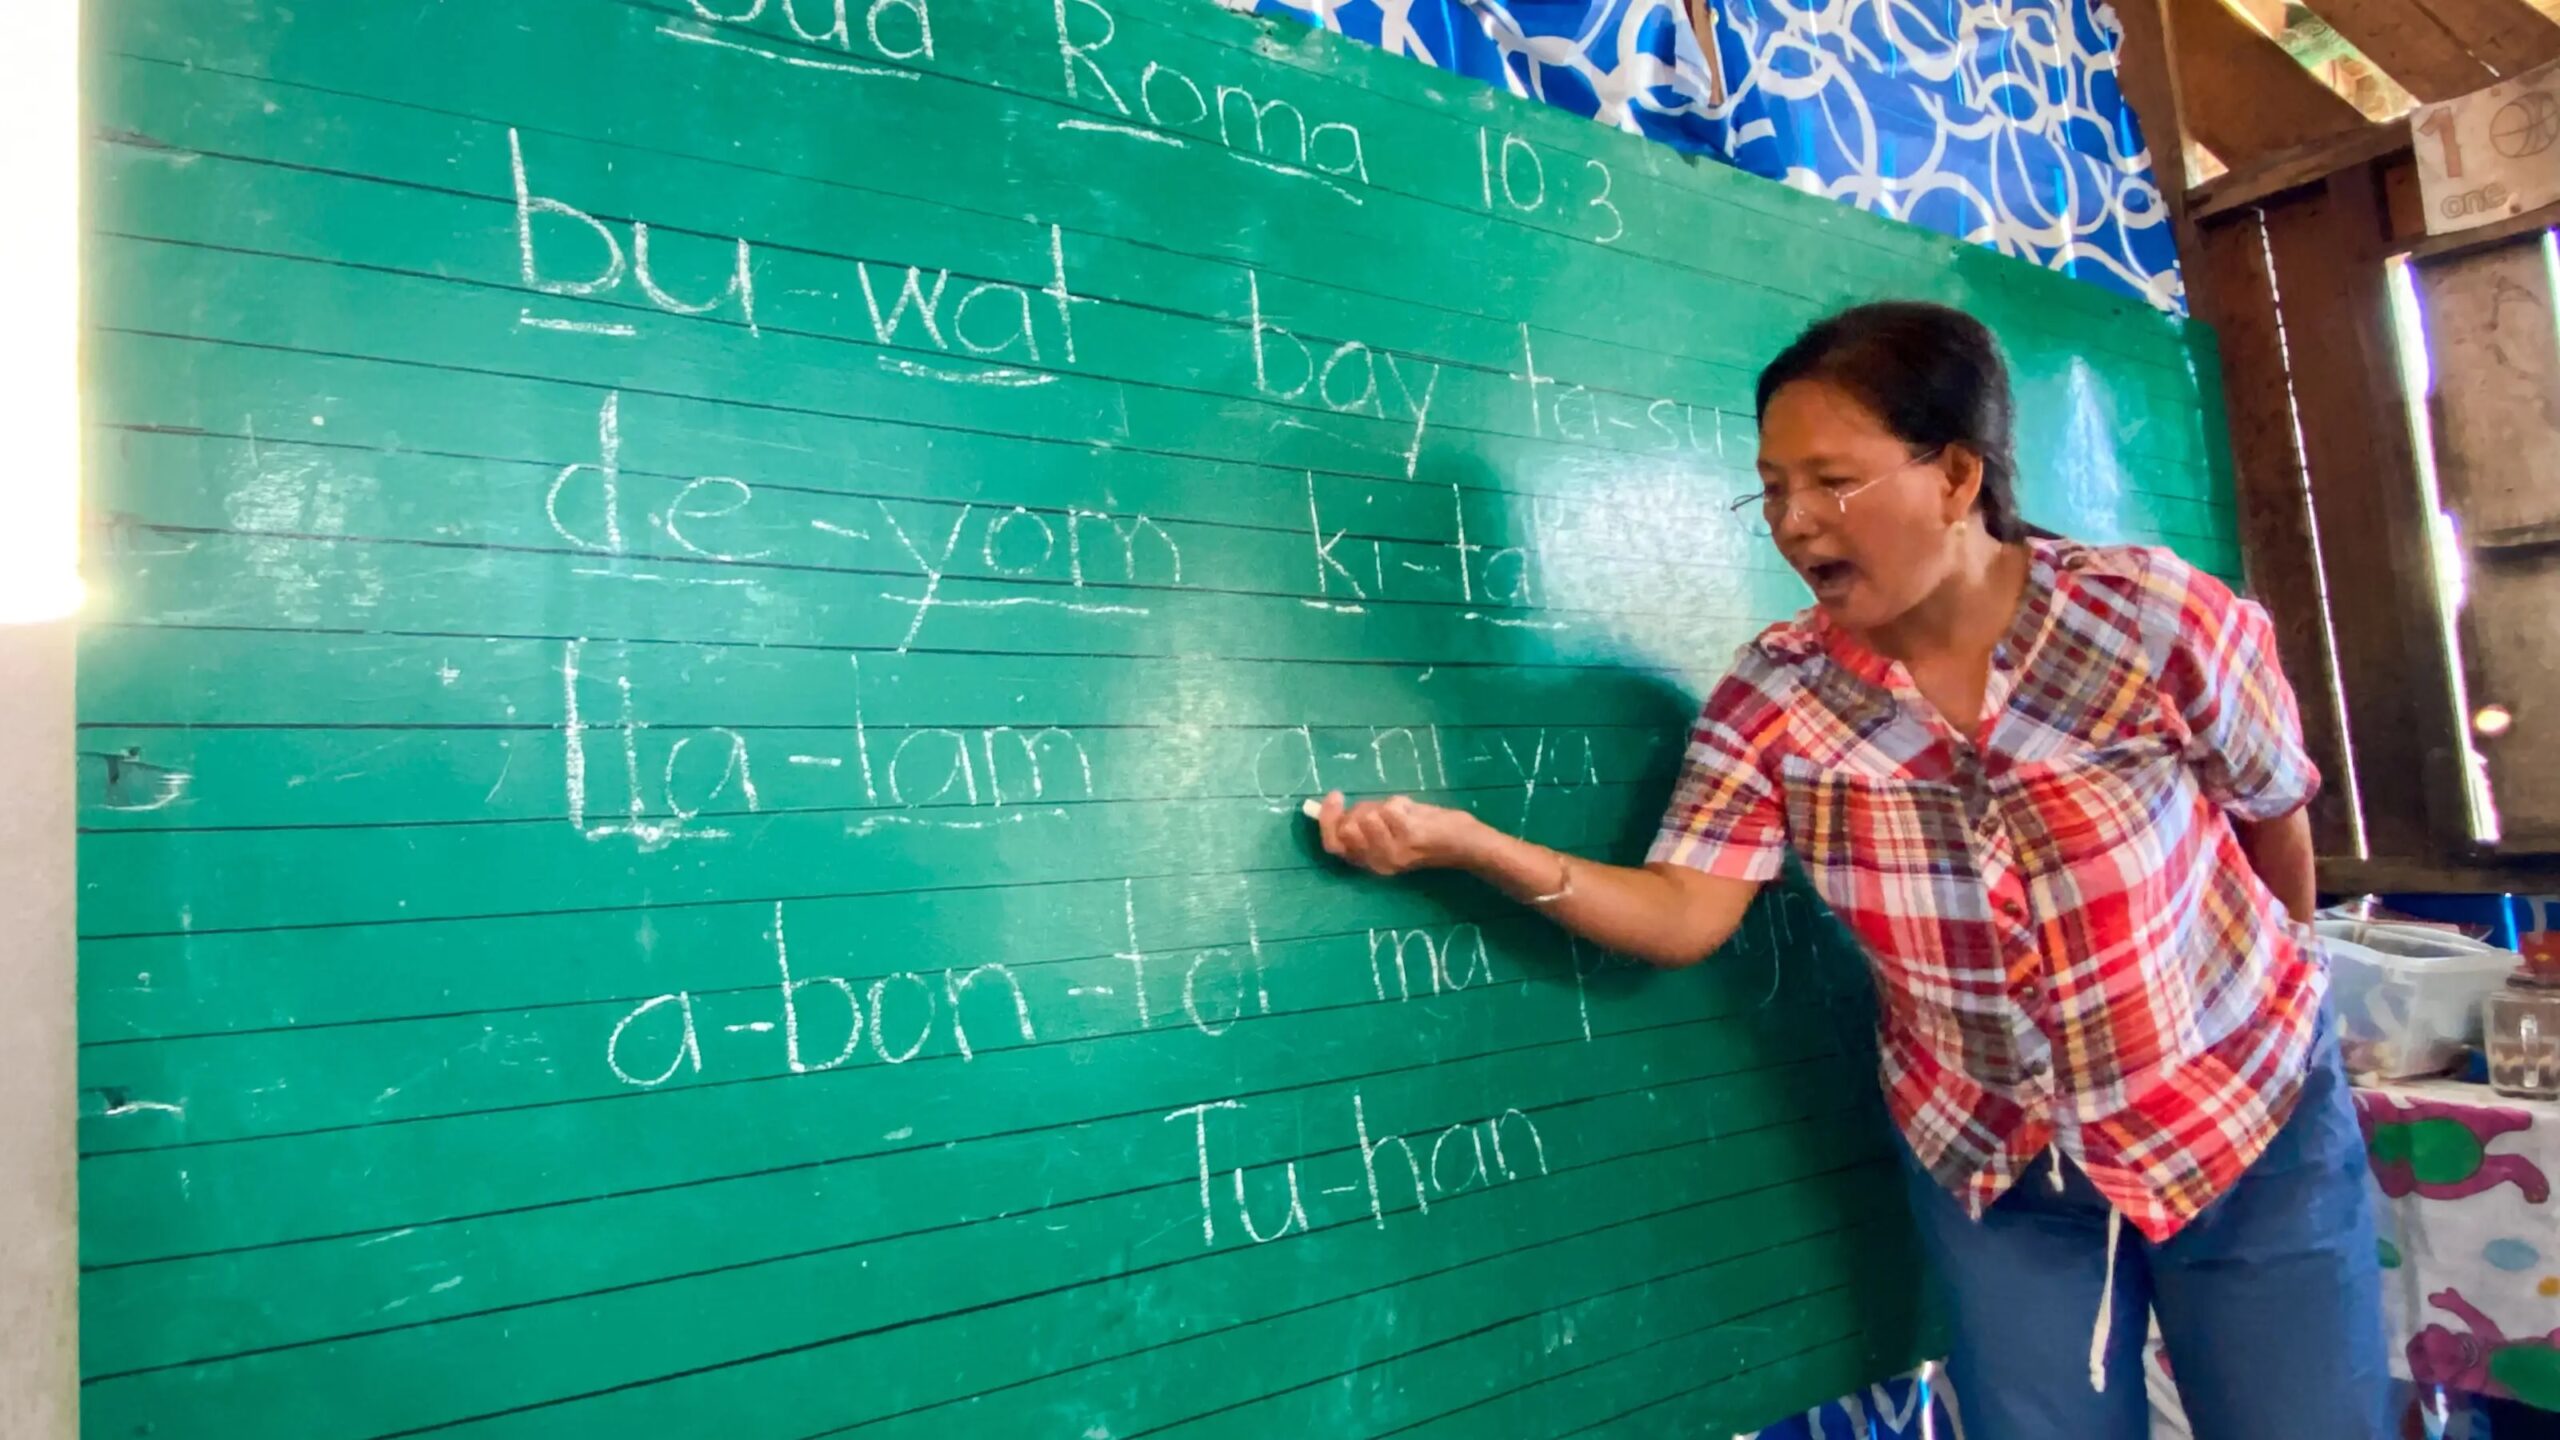 Roma 10:3
bu-wat bay ta-su-
de-yom ki-ta
lla-lam a-ni-ya
a-bon-tol ma
Tu-han
1
one